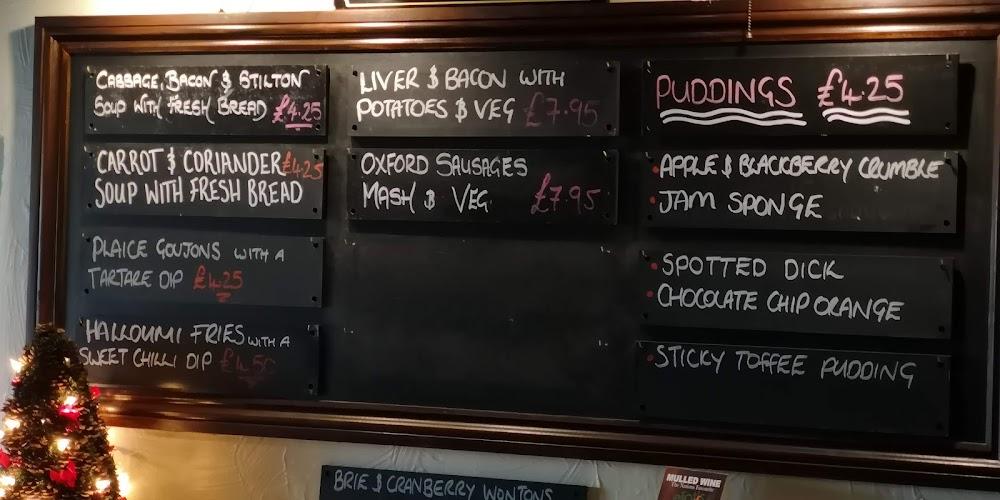 CABBAGE, BACON & STILTON
SOUP WITH FRESH BREAD £4.25
CARROT & CORIANDER £4.25
SOUP WITH FRESH BREAD
PLAICE GOUJONS WITH A
TARTARE DIP £4.25
HALLOUMI FRIES WITH A
SWEET CHILLI DIP £4.50
LIVER & BACON WITH
POTATOES & VEG £7.95
OXFORD SAUSAGES
MASH & VEG £7.95
PUDDINGS £4.25
• APPLE & BLACKBERRY CRUMBLE
• JAM SPONGE
• SPOTTED DICK
• CHOCOLATE CHIP ORANGE
• STICKY TOFFEE PUDDING
BRIE & CRANBERRY WONTONS
MULLED WINE